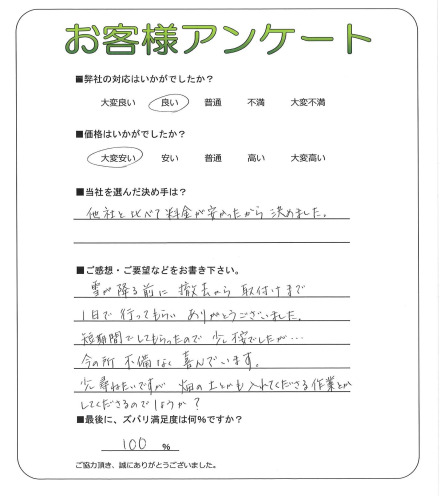 お客様アンケート
■弊社の対応はいかがでしたか？
大変良い 良い 普通 不満 大変不満
■価格はいかがでしたか？
大変安い 安い 普通 高い 大変高い
■当社を選んだ決め手は？
他社と比べて料金が安かったから決めました。
■ご感想・ご要望などをお書き下さい。
雪が降る前に撤去から取付けまで
1日で行ってもらいありがとうございました。
短期間でしてもらったので少し でしたが…
今の所不備なく喜んでいます。
少し尋ねたいですが畑の土とかも入れてくださる作業とか
してくださるのでしょうか？
■最後に、ズバリ満足度は何%ですか？
100 %
ご協力頂き、誠にありがとうございました。